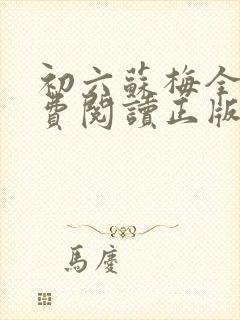 初六蘇梅全
費閱讀正版
馬慶